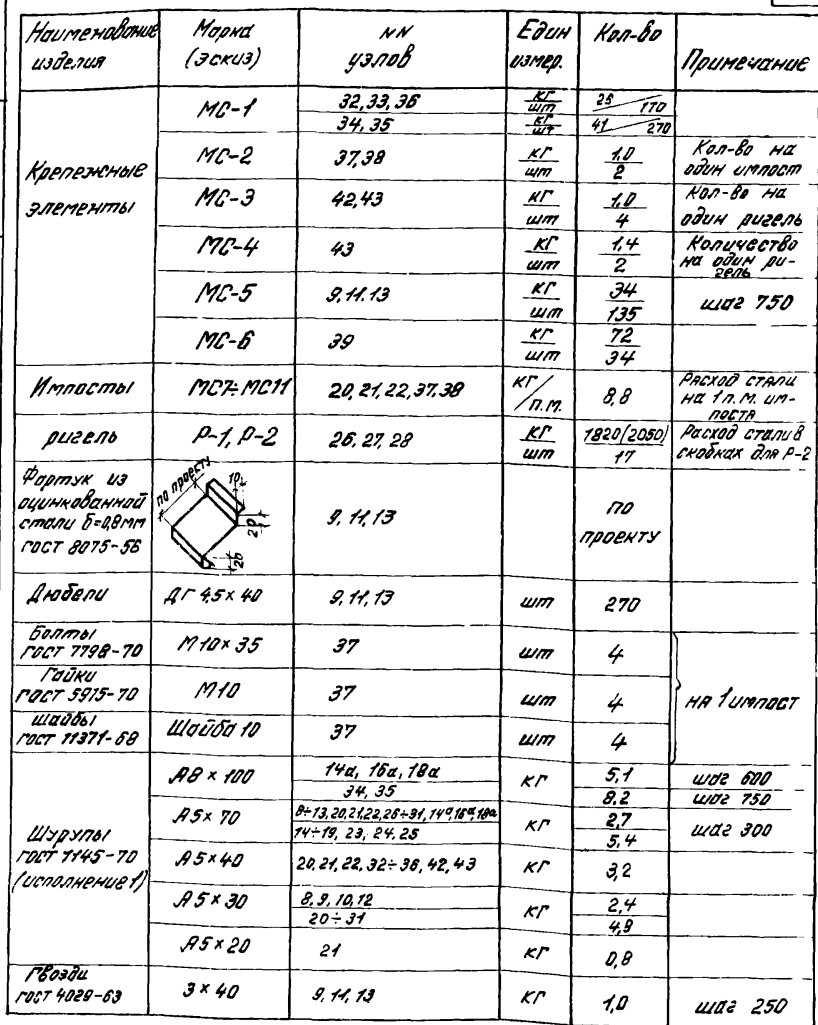 Наименование изделия | Марка (эскиз) | NN узлов | Един измер. | Кол-во | Примечание
Крепежные элементы | МС-1 | 32,33,36 | кг/шт | 25/170
34,35 | кг/шт | 41/270
МС-2 | 37,38 | кг/шт | 1,0/2 | Кол-во на один импост
МС-3 | 42,43 | кг/шт | 1,0/4 | Кол-во на один ригель
МС-4 | 43 | кг/шт | 1,4/2 | Количество на один ри-гель
МС-5 | 9,11.13 | кг/шт | 34/135 | шаг 750
МС-6 | 39 | кг/шт | 72/34
Импосты | МС7÷МС11 | 20,21,22,37,38 | кг/п.м. | 8,8 | Расход стали на 1 п.м. им-поста
ригель | Р-1, Р-2 | 26, 27, 28 | кг/шт | 1820(2050)/17 | Расход стали в скобках для Р-2
Фартук из оцинкованной стали δ=0,8мм ГОСТ 8075-56 | по проекту 10 20 20 | 9, 11, 13 | по проекту
Дюбели | ДГ 4,5×40 | 9,11,13 | шт | 270
Болты ГОСТ 7798-70 | М10×35 | 37 | шт | 4 | на 1 импост
Гайки ГОСТ 5915-70 | М10 | 37 | шт | 4
шайбы ГОСТ 11371-68 | Шайба 10 | 37 | шт | 4
Шурупы ГОСТ 1145-70 (исполнение 1) | А8×100 | 14а, 16а, 18а | кг | 5,1 | шаг 600
34, 35 | 8,2 | шаг 750
А5×70 | 8÷13,20,21,22,26÷31,14а,16а,18а | кг | 2,7 | шаг 300
14÷19, 23, 24, 25 | 5,4
А5×40 | 20,21,22,32÷36,42,43 | кг | 3,2
А5×30 | 8,9,10,12 | кг | 2,4
20÷31 | 4,9
А5×20 | 21 | кг | 0,8
Гвозди ГОСТ 4029-63 | 3×40 | 9,11,13 | кг | 1,0 | шаг 250